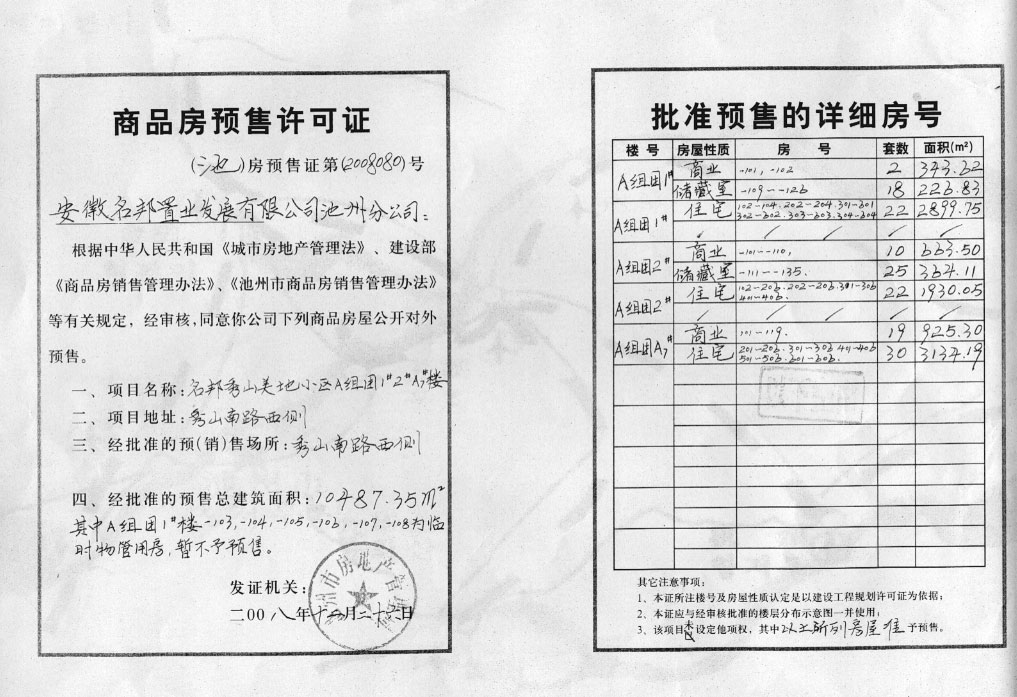 商品房预售许可证
(池)房预售证第(2008080)号
安徽名邦置业发展有限公司池州分公司:
根据中华人民共和国《城市房地产管理法》、建设部
《商品房销售管理办法》、《池州市商品房销售管理办法》
等有关规定,经审核,同意你公司下列商品房屋公开对外
预售。
一、项目名称:名邦秀山美地小区A组团1#2#A7#楼
二、项目地址:秀山南路西侧
三、经批准的预(销)售场所:秀山南路西侧
四、经批准的预售总建筑面积:10487.35m²
其中A组团1#楼-103,-104,-105,-106,-107,-108为临
时物管用房,暂不予预售。
发证机关:
二00八年十二月二十六日
批准预售的详细房号
楼号 房屋性质 房号 套数 面积(m²)
A组团1# 商业 -101,-102 2 343.62
储藏室 -109--126 18 226.83
A组团1# 住宅 102-104.202-204.301-301 22 2899.75
302-302.303-303.304-304
/ / / / /
A组团2# 商业 -101--110, 10 663.50
储藏室 -111--135. 25 364.11
A组团2# 住宅 102-206.202-206.301-306 22 1930.05
401-406.
/ / / / /
A组团A7# 商业 101-119. 19 925.30
住宅 201-206.301-306.401-406 30 3134.19
501-506.601-606.
其它注意事项:
1、本证所注楼号及房屋性质认定是以建设工程规划许可证为依据;
2、本证应与经审核批准的楼层分布示意图一并使用;
3、该项目未设定他项权,其中以上所列房屋准予预售。